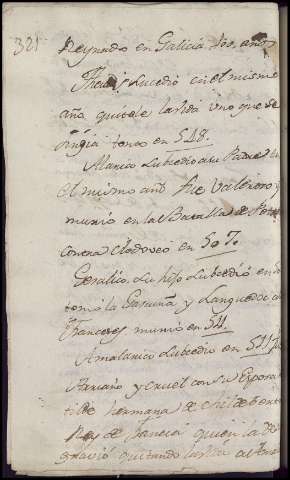 321
Reynado en Galicia años
Sucedió en el mismo
año quitole la vida uno que se
fingia tonto en 548.
Alarico Subcedio a su Padre en
el mismo año fue Valeroso y
murio en la Batalla de
contra Clodoveo en 507.
Su hijo Subcedió en
tomó la Gascuña y Languedoc
Franceses murio en 511.
Amalarico Subcedio en 511
Arriano y cruel con su Esposa
tilde hermana de Childeberto
Rey de Francia quien la
gravió quitando la vida al